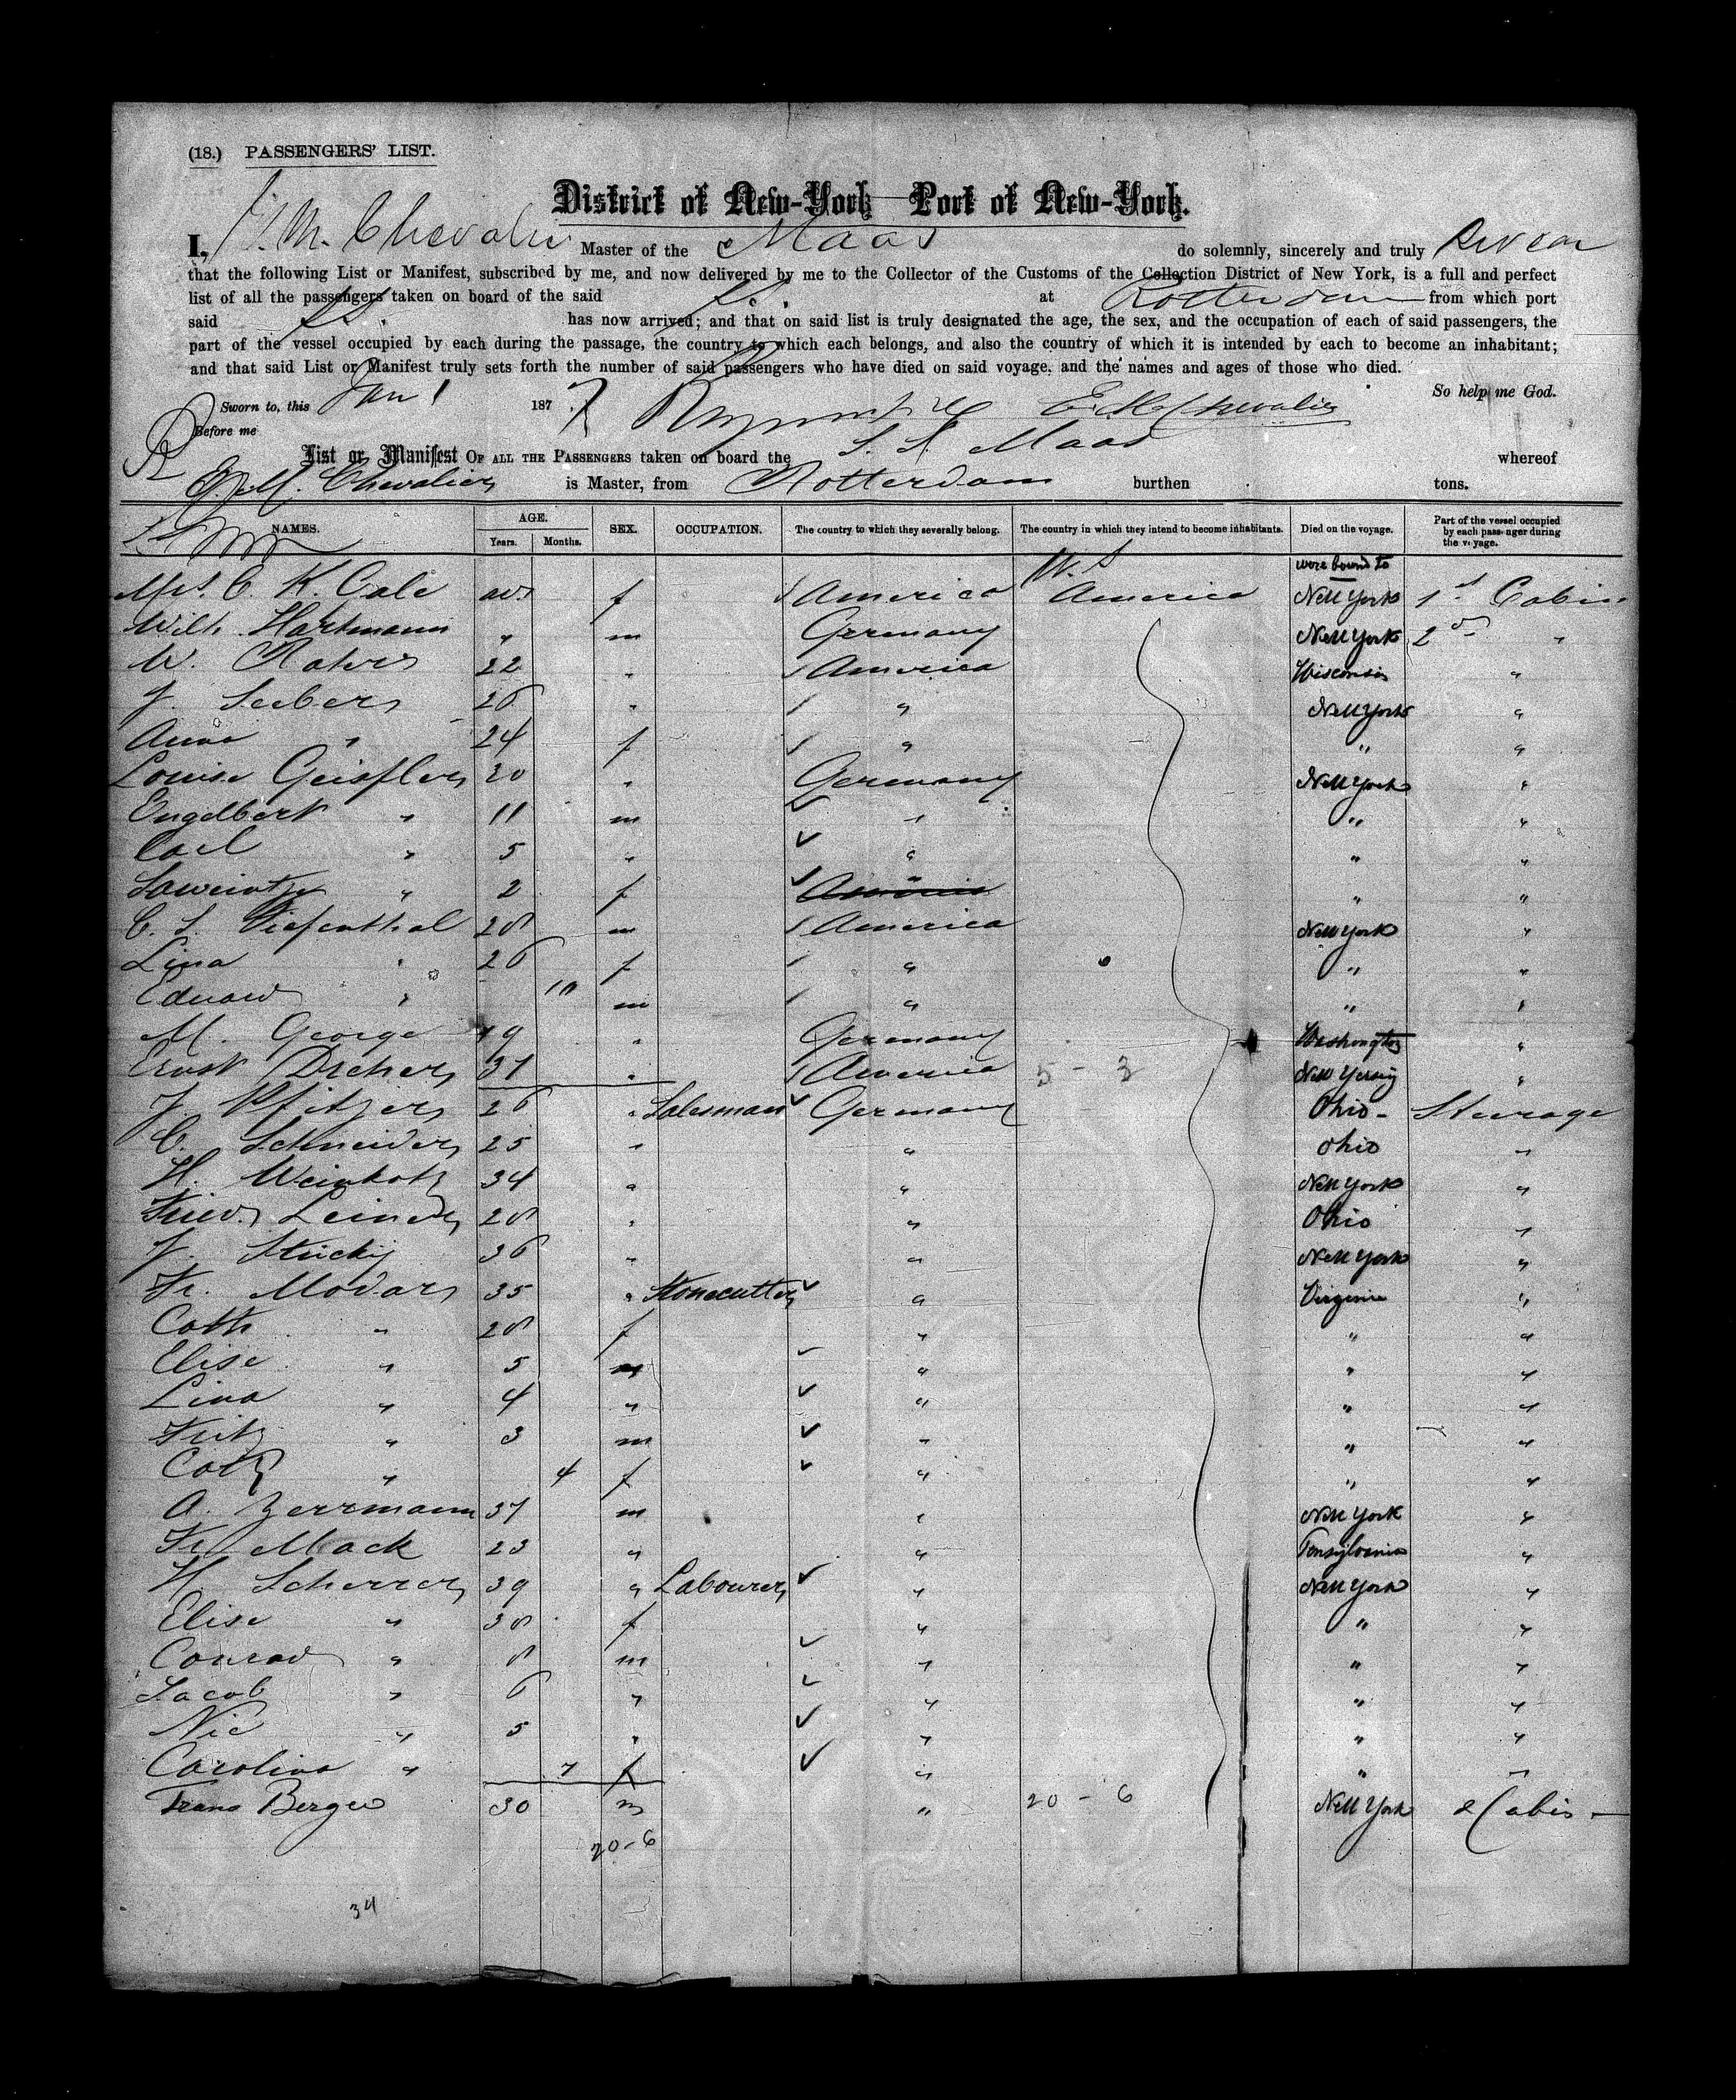 (18.) PASSENGERS' LIST.
District of New-York Port of New-York.
I, E. M. Chevalier Master of the Maas do solemnly, sincerely and truly swear
that the following List or Manifest, subscribed by me, and now delivered by me to the Collector of the Customs of the Collection District of New York, is a full and perfect
list of all the passengers taken on board of the said S. S. at Rotterdam from which port
said S. S. has now arrived; and that on said list is truly designated the age, the sex, and the occupation of each of said passengers, the
part of the vessel occupied by each during the passage, the country to which each belongs, and also the country of which it is intended by each to become an inhabitant;
and that said List or Manifest truly sets forth the number of said passengers who have died on said voyage, and the names and ages of those who died.
So help me God.
Sworn to, this Jan 1 187 7 E. M. Chevalier
Before me
List or Manifest OF ALL THE PASSENGERS taken on board the S. S. Maas whereof
E. M. Chevalier is Master, from Rotterdam burthen tons.
NAMES. AGE. Years. Months. SEX. OCCUPATION. The country to which they severally belong. The country in which they intend to become inhabitants. Died on the voyage. Part of the vessel occupied by each passenger during the voyage.
were bound to
Mrs. C. K. Cale ad. f America U.S America New York 1st Cabin
Wilh. Hartmann " m Germany New York 2d "
W. Rohrs 22 " America Wisconsin "
J. Seebers 26 " " New York "
Anna " 24 f " " "
Louise Geissler 30 " Germany New York "
Engelbert " 11 m " " "
Carl " 5 " " " "
" 2 f " " "
C. S. Tiefenthal 28 m America New York "
Lina " 26 f " " "
Eduard " 10 m " " "
M. George 19 " Germany Washington "
Ernst Dreher 37 " America 5 - 3 New Yersey "
J. Pfitzer 26 " Salesman Germany Ohio - Steerage
C. Schneider 25 " " Ohio "
H. Weinkotz 34 " " New York "
Fried. Leiner 28 " " Ohio "
J. Stucky 36 " " New York "
Fr. Modar 35 " Stonecutter " Virginia "
Cath " 28 f " " "
Elise " 5 " " "
Lina " 4 " " " "
Fritz " 3 m " " "
Cath " 4 f " " "
A. Zerrmann 37 m " New York "
Fr. Mack 23 " " Pensylvania "
H. Scherrer 39 " Labourer " New York "
Elise " 38 f " " "
Conrad " 8 m " " "
Jacob " 6 " " " "
Nic " 5 " " " "
Carolina " 7 f " " "
Franz Berger 30 m " 20 - 6 New York 2 Cabin
20-6
34